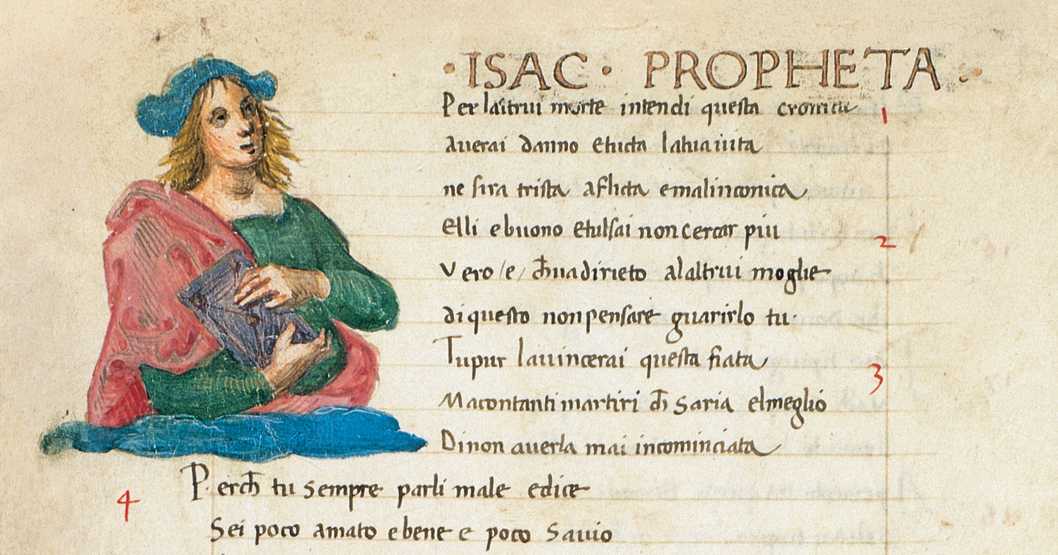 ·ISAC· PROPHETA·
Per laltrui morte intendi questa cronica 1
auerai danno etucta latua uita
ne sira trista aflicta emalinconica
elli ebuono etulsai non cercar piu 2
vero /e/ ch̄ua dirieto alaltrui moglie
di questo non pensare guarirlo tu·
Tupur lauincerai questa fiata 3
Macontanti martiri ch̄ saria elmeglio
Dinon auerla mai incominciata
4 Perch̄ tu sempre parli male edice
Sei poco amato ebene e poco sauio